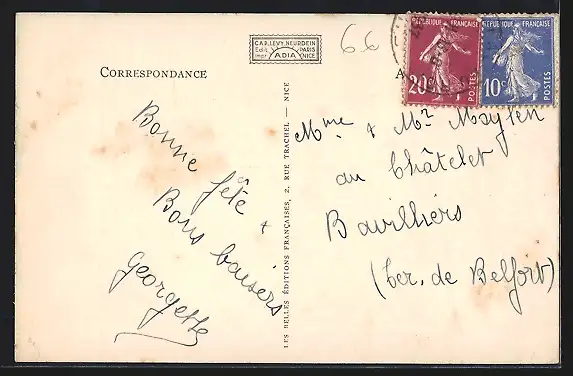 CAP. LEVY. NEURDEIN
Edit. PARIS
Impr. ADIA NICE
66
RÉPUBLIQUE FRANÇAISE
20c
POSTES
RÉPUBLIQUE FRANÇAISE
10c
POSTES
CORRESPONDANCE
A
Bonne fête
+
Bons baisers
Georgette
LES BELLES ÉDITIONS FRANÇAISES, 2, RUE TRACHEL — NICE
Mme + Mr
au Châtelet
Bavilliers
(Ter. de Belfort)